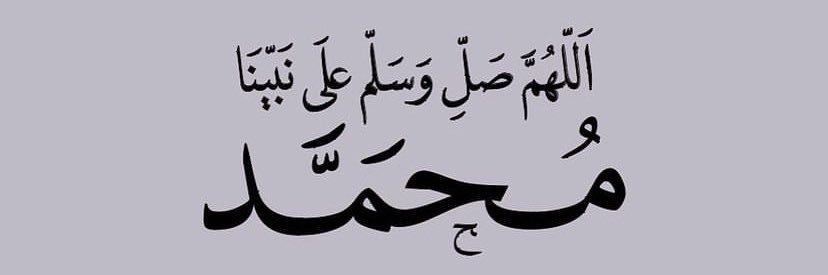 اَللّٰهُمَّ صَلِّ وَسَلِّمْ عَلَى نَبَيِّنَا
مُحَمَّد